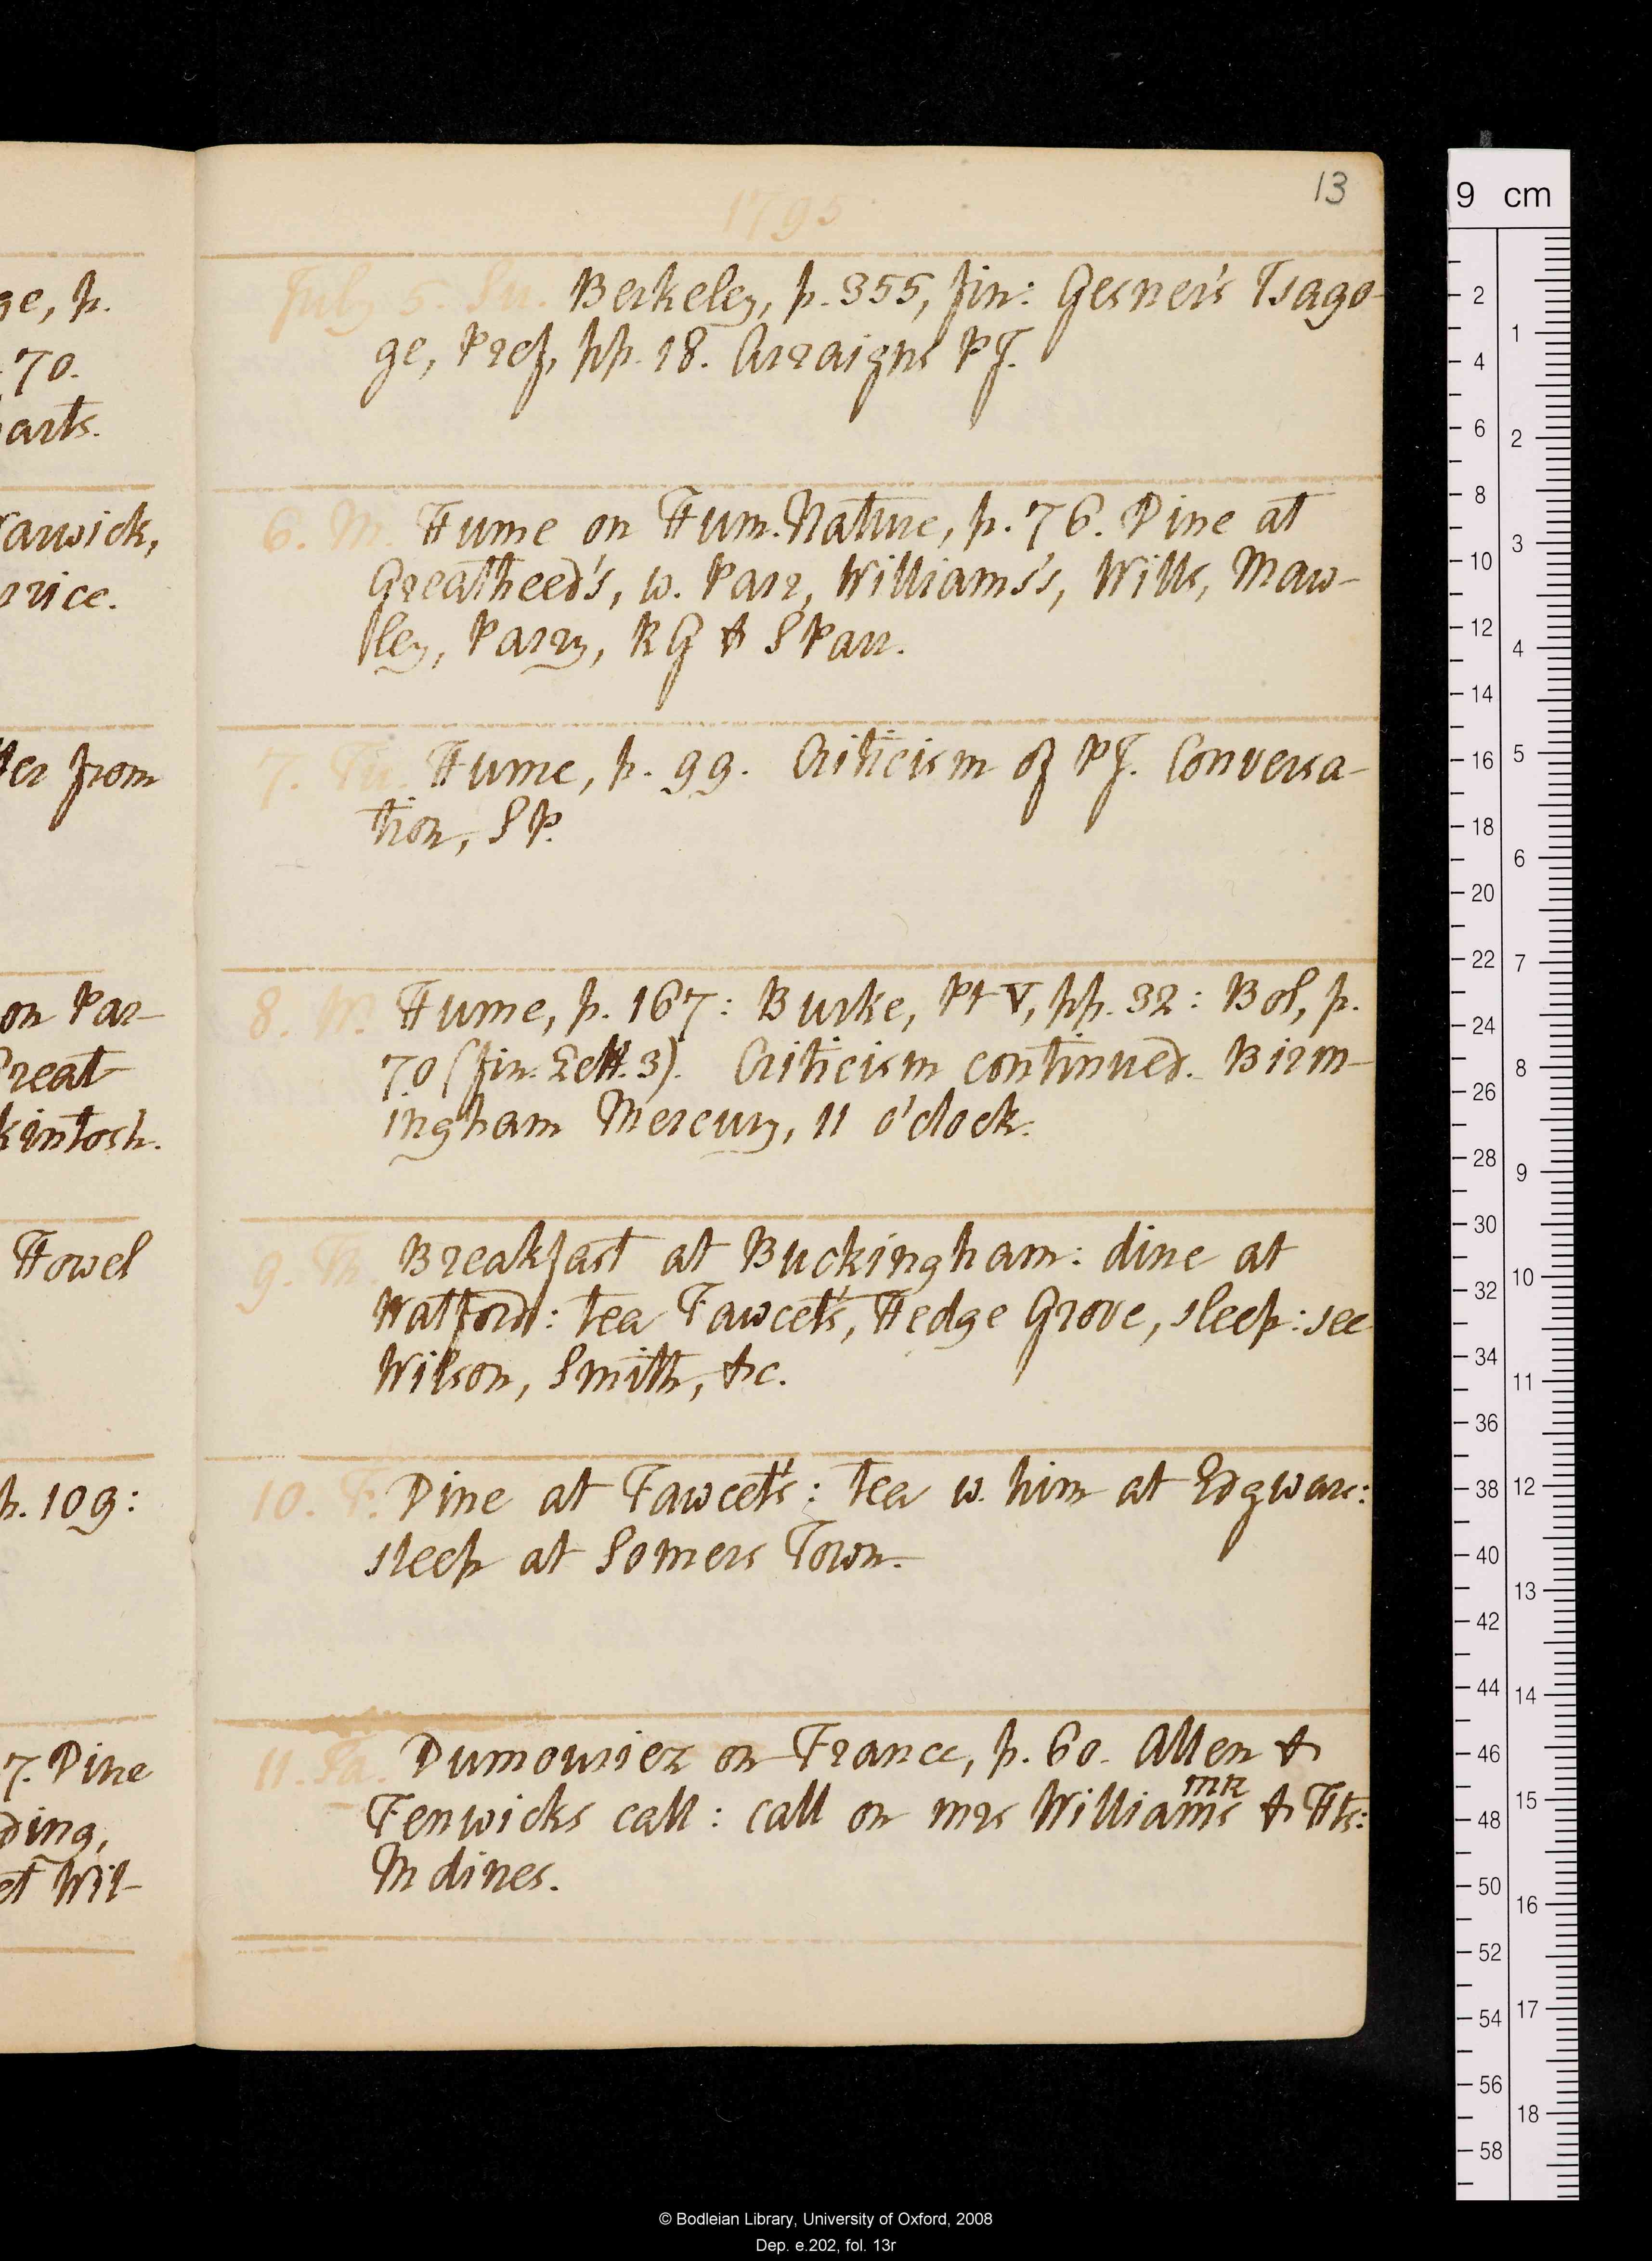 13
1795
ge, p.
70.
arts.
July 5. Su. Berkeley, p. 355, fin: Gesner's Isago-
ge, Pref, pp. 18. Arraigns PJ.
arwick,
rice.
6. M. Hume on Hum. Nature, p. 76. Dine at
Greatheed's, w. Parr, Williams's, Wills, Maw-
lley, Parry, RG & S Parr.
ter from
7. Tu. Hume, p. 99. Criticism of PJ. Conversa-
tion, SP.
on Par-
reat
kintosh.
8. W. Hume, p. 167: Burke, Pt V, pp. 32: Bol, p.
70 (fin. Lett. 3). Criticism continued. Birm-
ingham Mercury, 11 o'clock.
Howel
9. Th. Breakfast at Buckingham: dine at
Watford: tea Fawcet's, Hedge Grove, sleep: see
Wilson, Smith, &c.
p. 109:
10. F. Dine at Fawcet's: tea w. him at Edgware:
sleep at Somers Town.
7. Dine
ding,
et Wil-
11. Sa. Dumouriez on France, p. 60. Allen &
Fenwicks call: call on mrs Williams mR & Hts:
M dines.
9 cm
2
4
6
8
10
12
14
16
18
20
22
24
26
28
30
32
34
36
38
40
42
44
46
48
50
52
54
56
58
1
2
3
4
5
6
7
8
9
10
11
12
13
14
15
16
17
18
© Bodleian Library, University of Oxford, 2008
Dep. e.202, fol. 13r